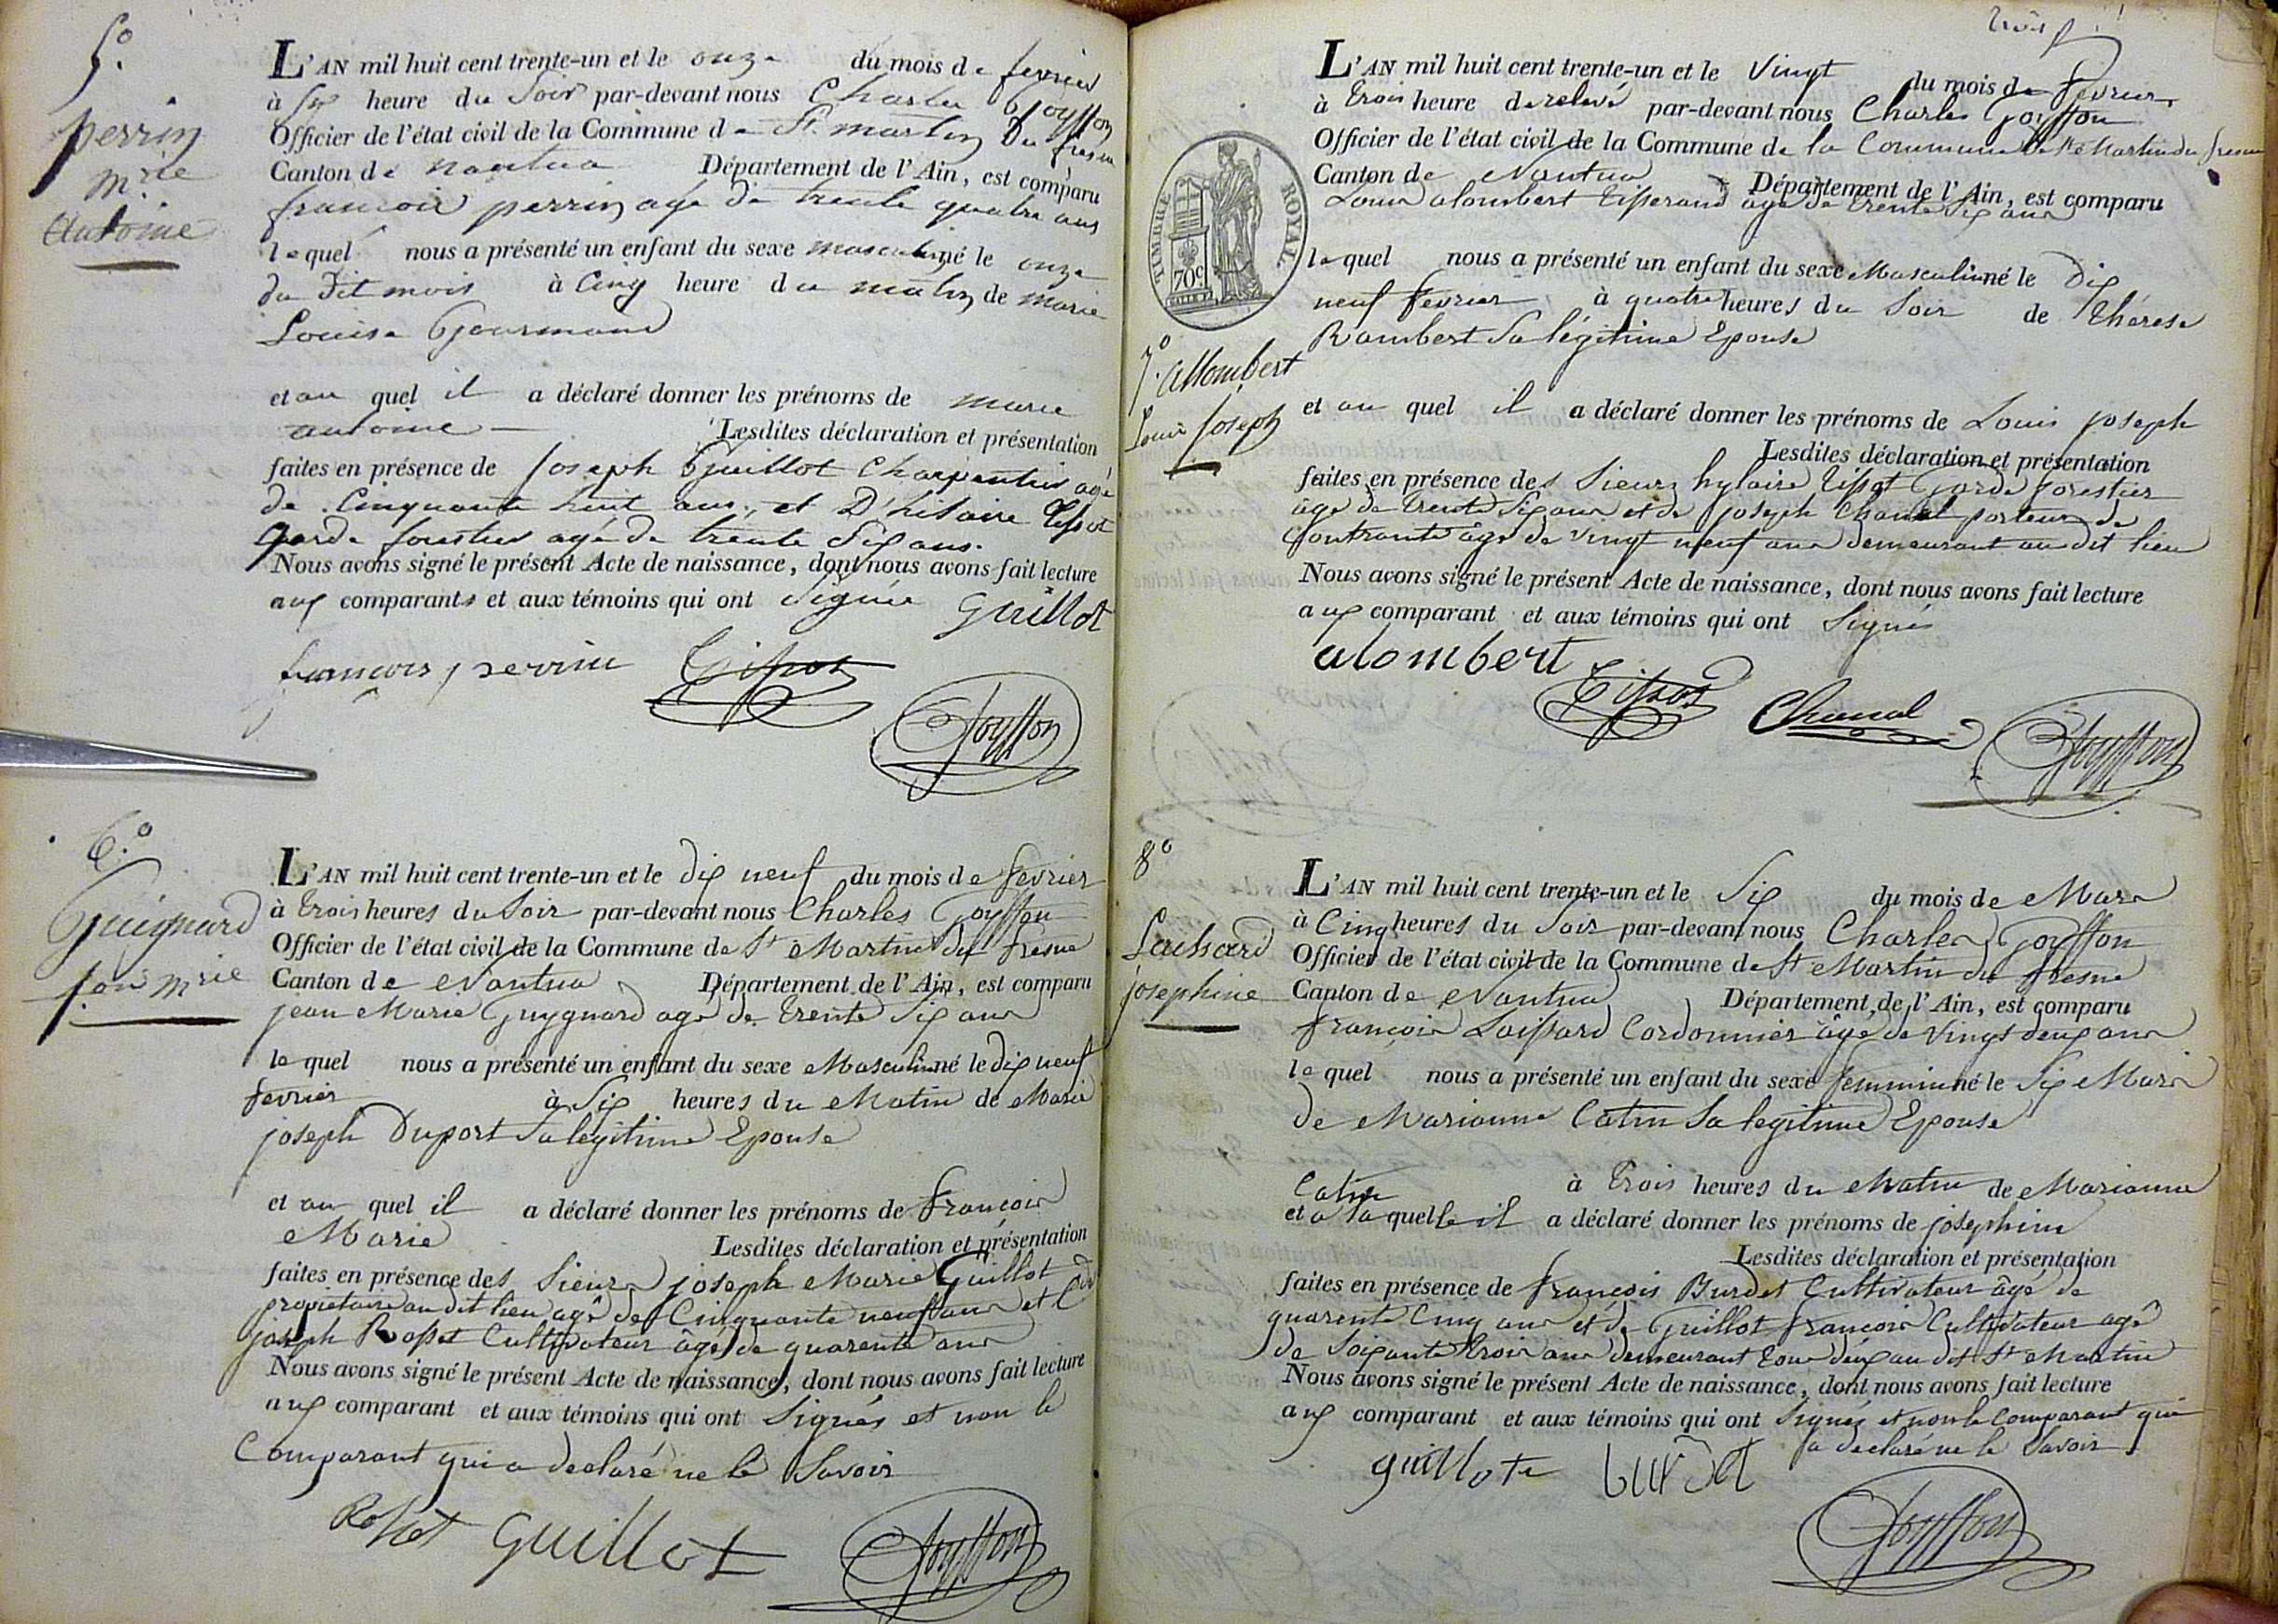 5.º
perrin
m.rie
antoine
L'AN mil huit cent trente-un et le onze du mois de fevrier
à six heure du Soir par-devant nous Charles Goyffon
Officier de l'état civil de la Commune de St. martin Du fresne
Canton de nantua Département de l'Ain, est comparu
francois perrin agé de trente quatre ans
lequel nous a présenté un enfant du sexe masculin né le onze
du dit mois à Cinq heure du matin de marie
Louise Gourmand
et au quel il a déclaré donner les prénoms de marie
antoine Lesdites déclaration et présentation
faites en présence de Joseph Guillot Charpentier agé
de Cinquante huit ans, et D'hilaire Tissot
Garde forestier agé de trente Six ans.
Nous avons signé le présent Acte de naissance, dont nous avons fait lecture
aux comparants et aux témoins qui ont Signé Guillot
francois perrin Tissot
Goyffon
6.º
Guignard
f.ois m.rie
L'AN mil huit cent trente-un et le dix neuf du mois de fevrier
à trois heures du Soir par-devant nous Charles Goyffon
Officier de l'état civil de la Commune de St Martin du fresne
Canton de Nantua Département de l'Ain, est comparu
jean Marie Guygnard agé de trente Six ans
lequel nous a présenté un enfant du sexe Masculin né le dix neuf
fevrier à Six heures du Matin de Marie
joseph Duport Sa légitime Epouse
et au quel il a déclaré donner les prénoms de françois
Marie Lesdites déclaration et présentation
faites en présence des Sieurs joseph Marie Guillot
propriétaire au dit lieu agé de Cinquante neuf ans et
joseph Rosset Cultivateur âgé de quarente ans
Nous avons signé le présent Acte de naissance, dont nous avons fait lecture
aux comparant et aux témoins qui ont Signés et non le
Comparant qui a declaré ne le Savoir
Rosset Guillot Goyffon
trois
TIMBRE ROYAL
70c
7.º allombert
Louis Joseph
L'AN mil huit cent trente-un et le Vingt du mois de fevrier
à trois heure de relevé par-devant nous Charles Goyffon
Officier de l'état civil de la Commune de la Commune de St Martin du fresne
Canton de Nantua Département de l'Ain, est comparu
Louis alombert tisserand agé de trente Six ans
lequel nous a présenté un enfant du sexe Masculin né le Dix
neuf fevrier à quatre heures du Soir de thérese
Rambert Sa légitime Epouse
et au quel il a déclaré donner les prénoms de Louis joseph
Lesdites déclaration et présentation
faites en présence des Sieurs hylaire tissot Garde forestier
âgé de trente Six ans et de joseph Chanal porteur de
Contrainte âgé de vingt neuf ans demeurant au dit lieu
Nous avons signé le présent Acte de naissance, dont nous avons fait lecture
aux comparant et aux témoins qui ont Signés
alombert
Tissot Chanal Goyffon
8º
Laissard
josephine
L'AN mil huit cent trente-un et le Six du mois de Mars
à Cinq heures du Soir par-devant nous Charles Goyffon
Officier de l'état civil de la Commune de St Martin du fresne
Canton de Nantua Département de l'Ain, est comparu
françois Laissard Cordonnier âgé de Vingt deux ans
lequel nous a présenté un enfant du sexe femminin né le Six Mars
de Marianne Catin Sa legitime Epouse
à trois heures du Matin de Marianne
Catin
et a la quelle il a déclaré donner les prénoms de josephine
Lesdites déclaration et présentation
faites en présence de françois Burdet Cultivateur âgé de
quarente Cinq ans et de Guillot françois Cultivateur agé
de Soixante trois ans demeurant tous deux au dit St Martin
Nous avons signé le présent Acte de naissance, dont nous avons fait lecture
aux comparant et aux témoins qui ont Signés et non le Comparant qui
a declaré ne le Savoir
guillot burdet
Goyffon